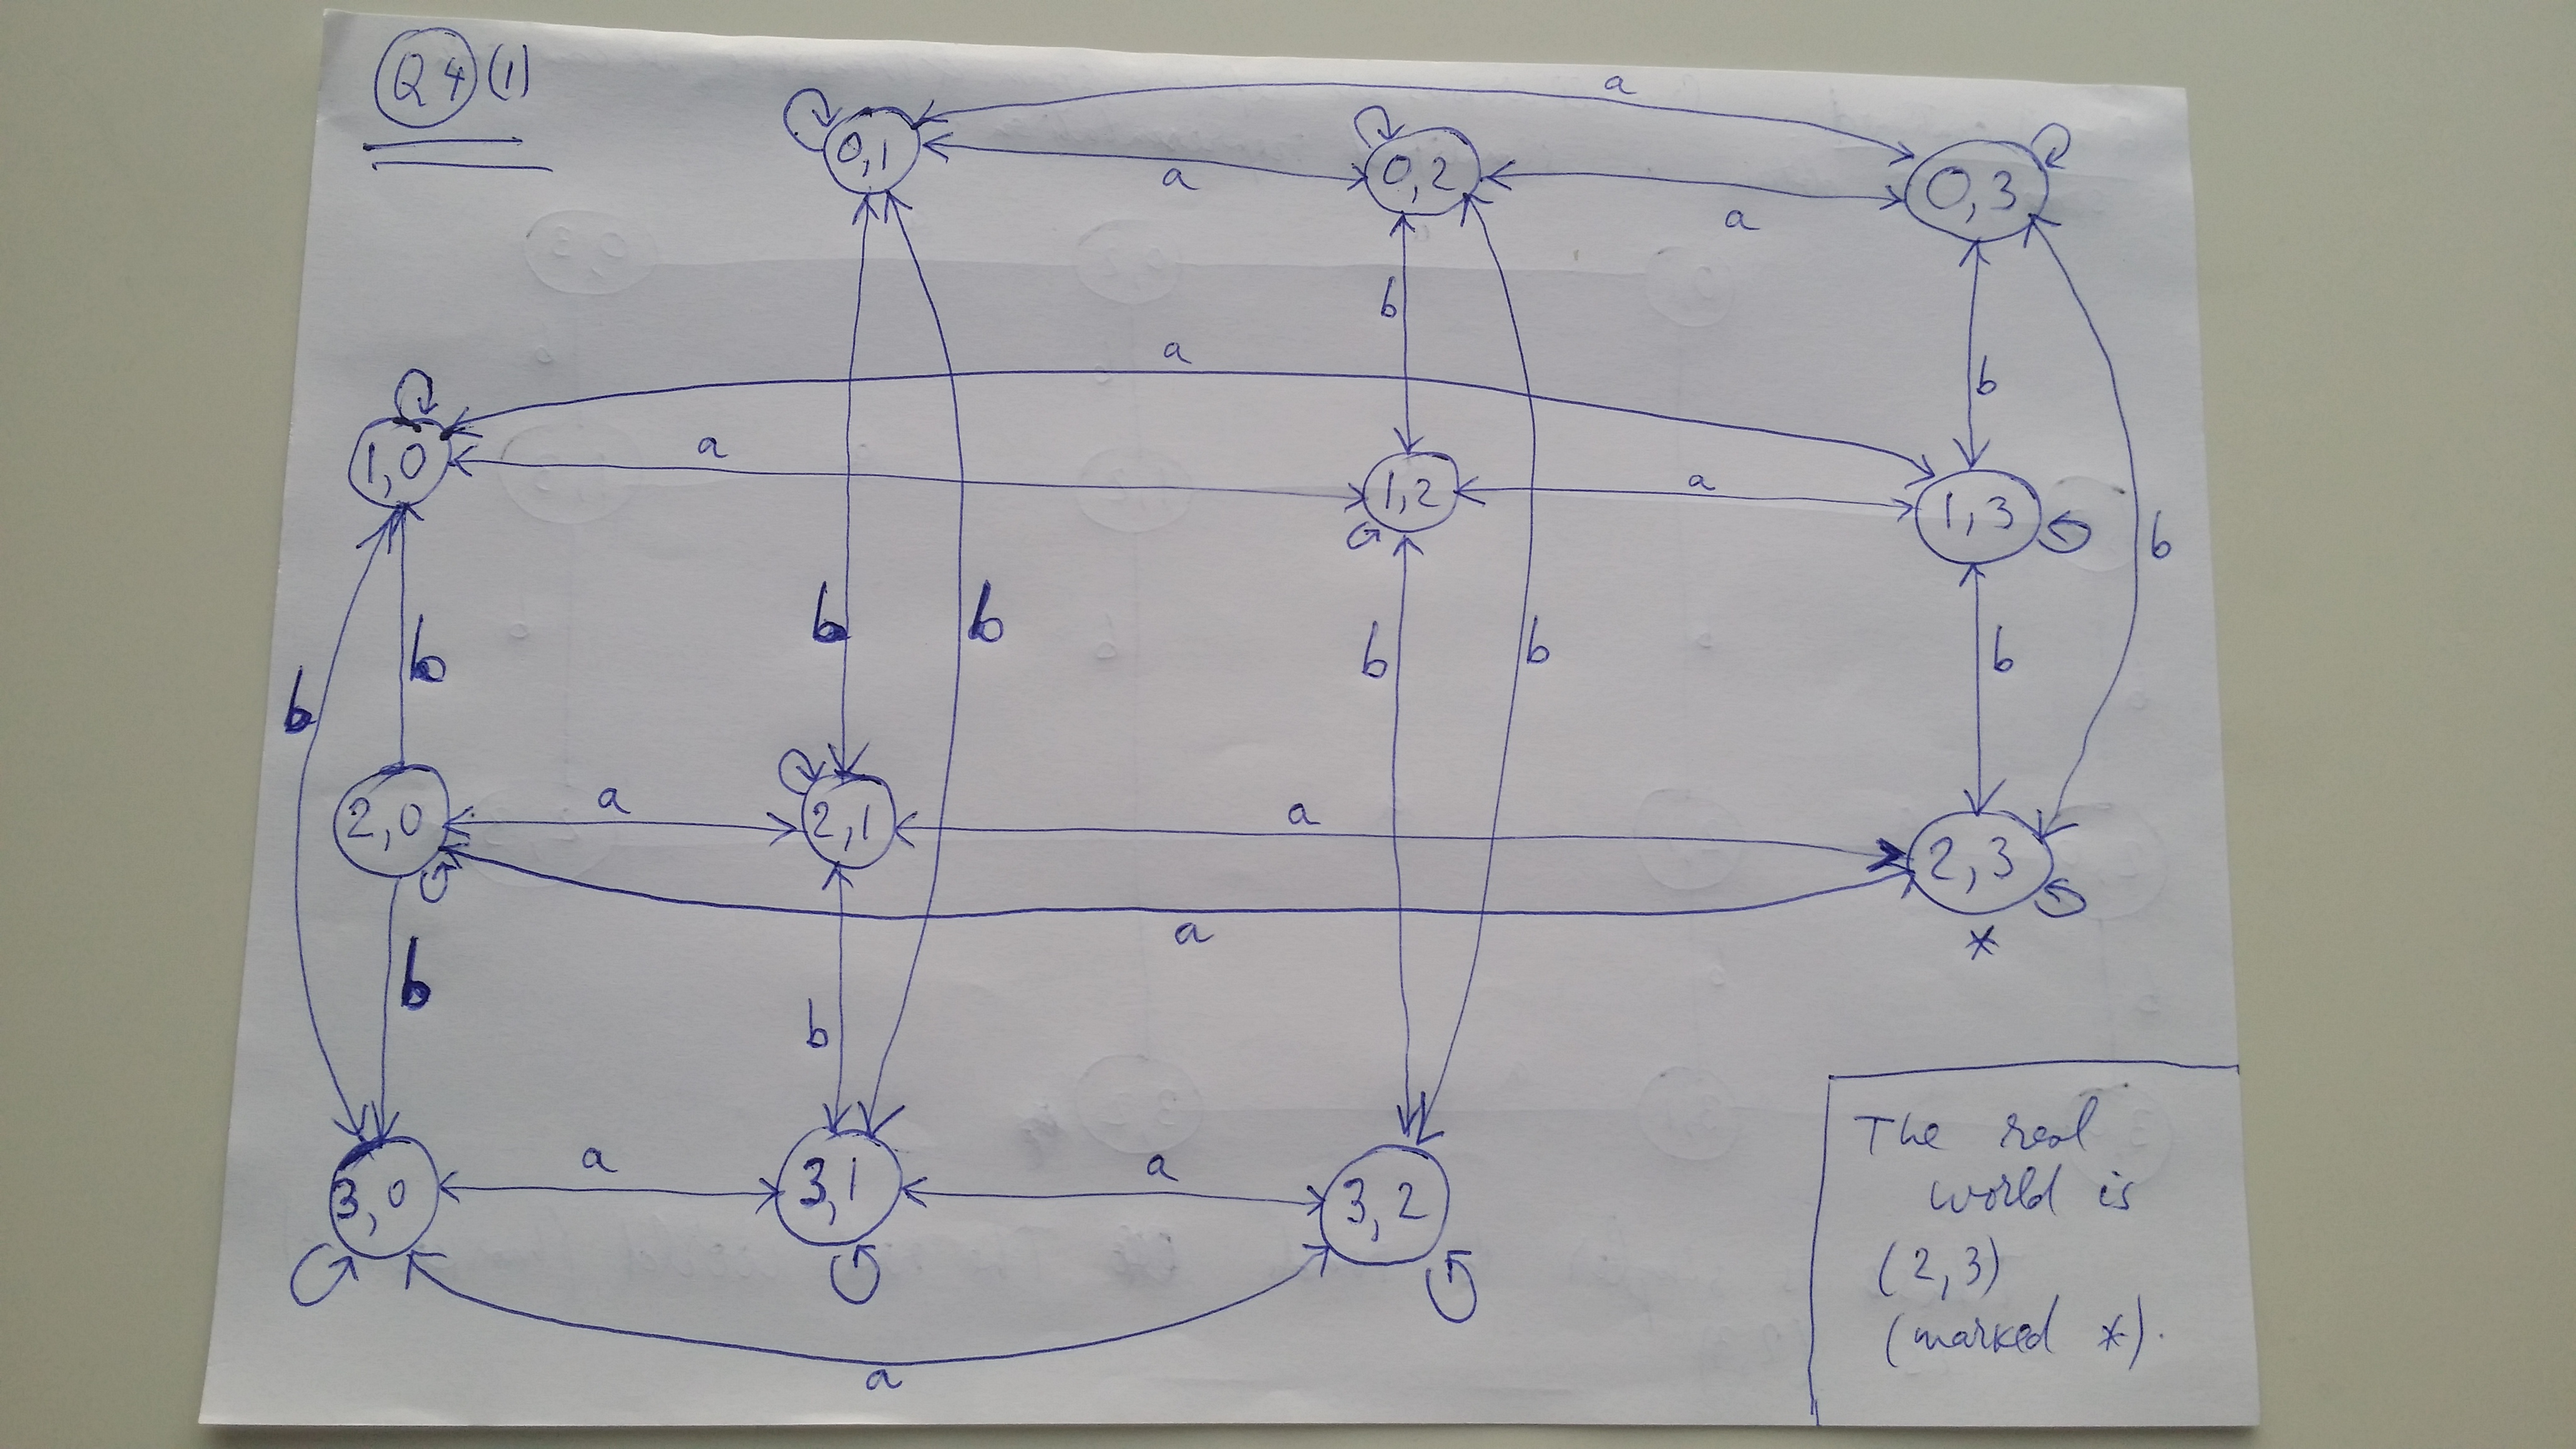 Q4 (1)
a
0,1
a
0,2
a
0,3
b
a
b
1,0
a
1,2
a
1,3
b
b
b
b
b
b
b
b
2,0
a
2,1
a
2,3
a
*
b
b
3,0
a
3,1
a
3,2
a
The real
world is
(2,3)
(marked *).